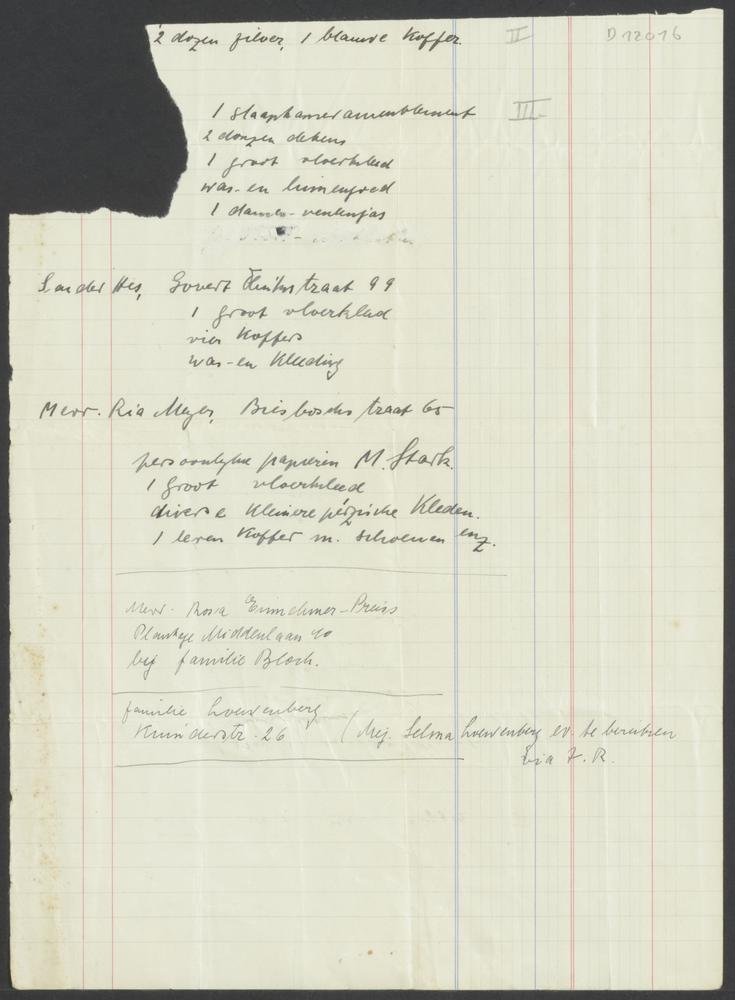 2 dozen zilver, 1 blauwe koffer. II D12016
1 slaapkamerameublement III
2 donzen dekens
1 groot vloerkleed
was- en linnengoed
1 dames-
Sander Hes, Govert Flinkstraat 99
1 groot vloerkleed
vier koffers
was- en kleding
Mevr. Ria Meyer, Biesboschstraat 65
persoonlyke papieren M. Stark.
1 groot vloerkleed
diverse kleinere pérzische kleden.
1 leren koffer m. schoenen enz.
Mevr. Rosa Einnehmer-Preiss
Plantage Middenlaan 40
bij familie Bloch.
familie Loewenberg
Kuinderstr. 26 ( Mej. Selma Loewenberg ev. te bereiken
via J. R.